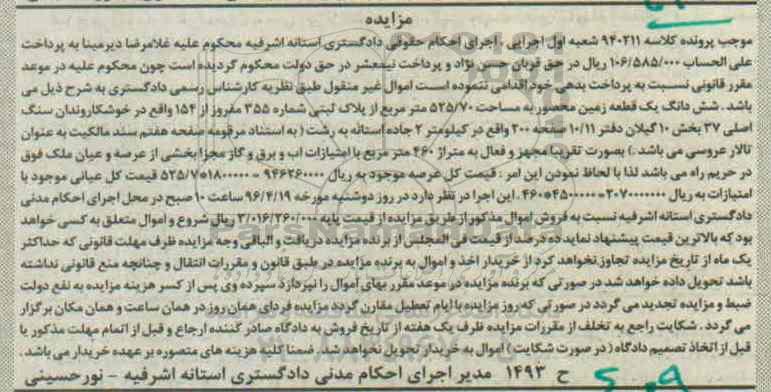 مزایده
موجب پرونده کلاسه ۹۴۰۲۱۱ شعبه اول اجرایی ، اجرای احکام حقوقی دادگستری استانه اشرفیه محکوم علیه غلامرضا دیرمینا به پرداخت
علی الحساب ۱۰۶/۵۸۵/۰۰۰ ریال در حق قربان حسن نژاد و پرداخت نیمعشر در حق دولت محکوم گردیده است چون محکوم علیه در موعد
مقرر قانونی نسبت به پرداخت بدهی خود اقدامی ننموده است اموال غیر منقول طبق نظریه کارشناس رسمی دادگستری به شرح ذیل می
باشد . شش دانگ یک قطعه زمین محصور به مساحت ۵۲۵/۷۰ متر مربع از پلاک ثبتی شماره ۳۵۵ مفروز از ۱۵۴ واقع در خوشکاروندان سنگ
اصلی ۳۷ بخش ۱۰ گیلان دفتر ۱۰/۱۱ صفحه ۲۰۰ واقع در کیلومتر ۲ جاده استانه به رشت ( به استناد مرقومه صفحه هفتم سند مالکیت به عنوان
تالار عروسی می باشد .) بصورت تقریبا مجهز و فعال به متراژ ۴۶۰ متر مربع با امتیازات اب و برق و گاز مجزا بخشی از عرصه و عیان ملک فوق
در حریم راه می باشد لذا با لحاظ نمودن این امر : قیمت کل عرصه موجود به ریال ۹۴۶۲۶۰۰۰۰=۱۸۰۰۰۰۰*۵۲۵/۷ قیمت کل عیانی موجود با
امتیازات به ریال ۲۰۷۰۰۰۰۰۰۰=۴۵۰۰۰۰۰*۴۶۰ . این اجرا در نظر دارد در روز دوشنبه مورخه ۹۶/۴/۱۹ ساعت ۱۰ صبح در محل اجرای احکام مدنی
دادگستری استانه اشرفیه نسبت به فروش اموال مذکور از طریق مزایده از قیمت پایه ۳/۰۱۶/۲۶۰/۰۰۰ ریال شروع و اموال متعلق به کسی خواهد
بود که بالاترین قیمت پیشنهاد نماید ده درصد از قیمت فی المجلس از برنده مزایده دریافت و الباقی وجه مزایده ظرف مهلت قانونی که حداکثر
یک ماه از تاریخ مزایده تجاوز نخواهد کرد از خریدار اخذ و اموال به برنده مزایده در طبق قانون و مقررات انتقال و چنانچه منع قانونی نداشته
باشد تحویل داده خواهد شد در صورتی که برنده مزایده در موعد مقرر بهای اموال را نپردازد سپرده وی پس از کسر هزینه مزایده به نفع دولت
ضبط و مزایده تجدید می گردد در صورتی که روز مزایده با ایام تعطیل مقارن گردد مزایده فردای همان روز در همان ساعت و همان مکان برگزار
می گردد . شکایت راجع به تخلف از مقررات مزایده ظرف یک هفته از تاریخ فروش به دادگاه صادر کننده ارجاع و قبل از اتمام مهلت مذکور یا
قبل از اتخاذ تصمیم دادگاه ( در صورت شکایت ) اموال به خریدار تحویل نخواهد شد . ضمنا کلیه هزینه های متصوره بر عهده خریدار می باشد .
ح ۱۴۹۳ مدیر اجرای احکام مدنی دادگستری استانه اشرفیه - نورحسینی
ParsNamadData